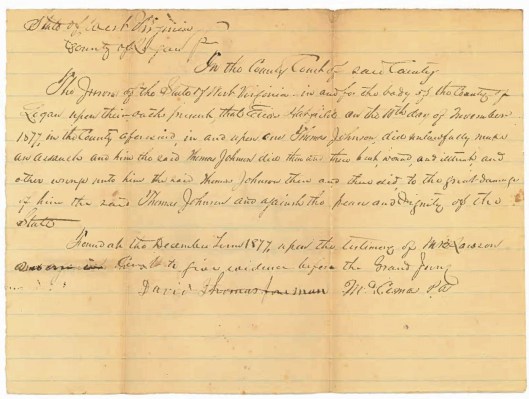 State of West Virginia
County of Logan
In the County Court of said County
The Jurors of the State of West Virginia in and for the body of the County of
Logan upon their oaths present that Elias Hatfield on the 11th day of November
1877, in the County aforesaid, in and upon one Thomas Johnson, did unlawfully make
an assault and him the said Thomas Johnson did then and there beat, wound, and illtreat, and
other wrongs unto him the said Thomas Johnson then and there did to the great damage
of him the said Thomas Johnson and against the peace and Dignity of the
State
Found at the December Term 1877, upon the testimony of Lawson
sworn in to give evidence before the Grand Jury
David Thomas foreman P.A